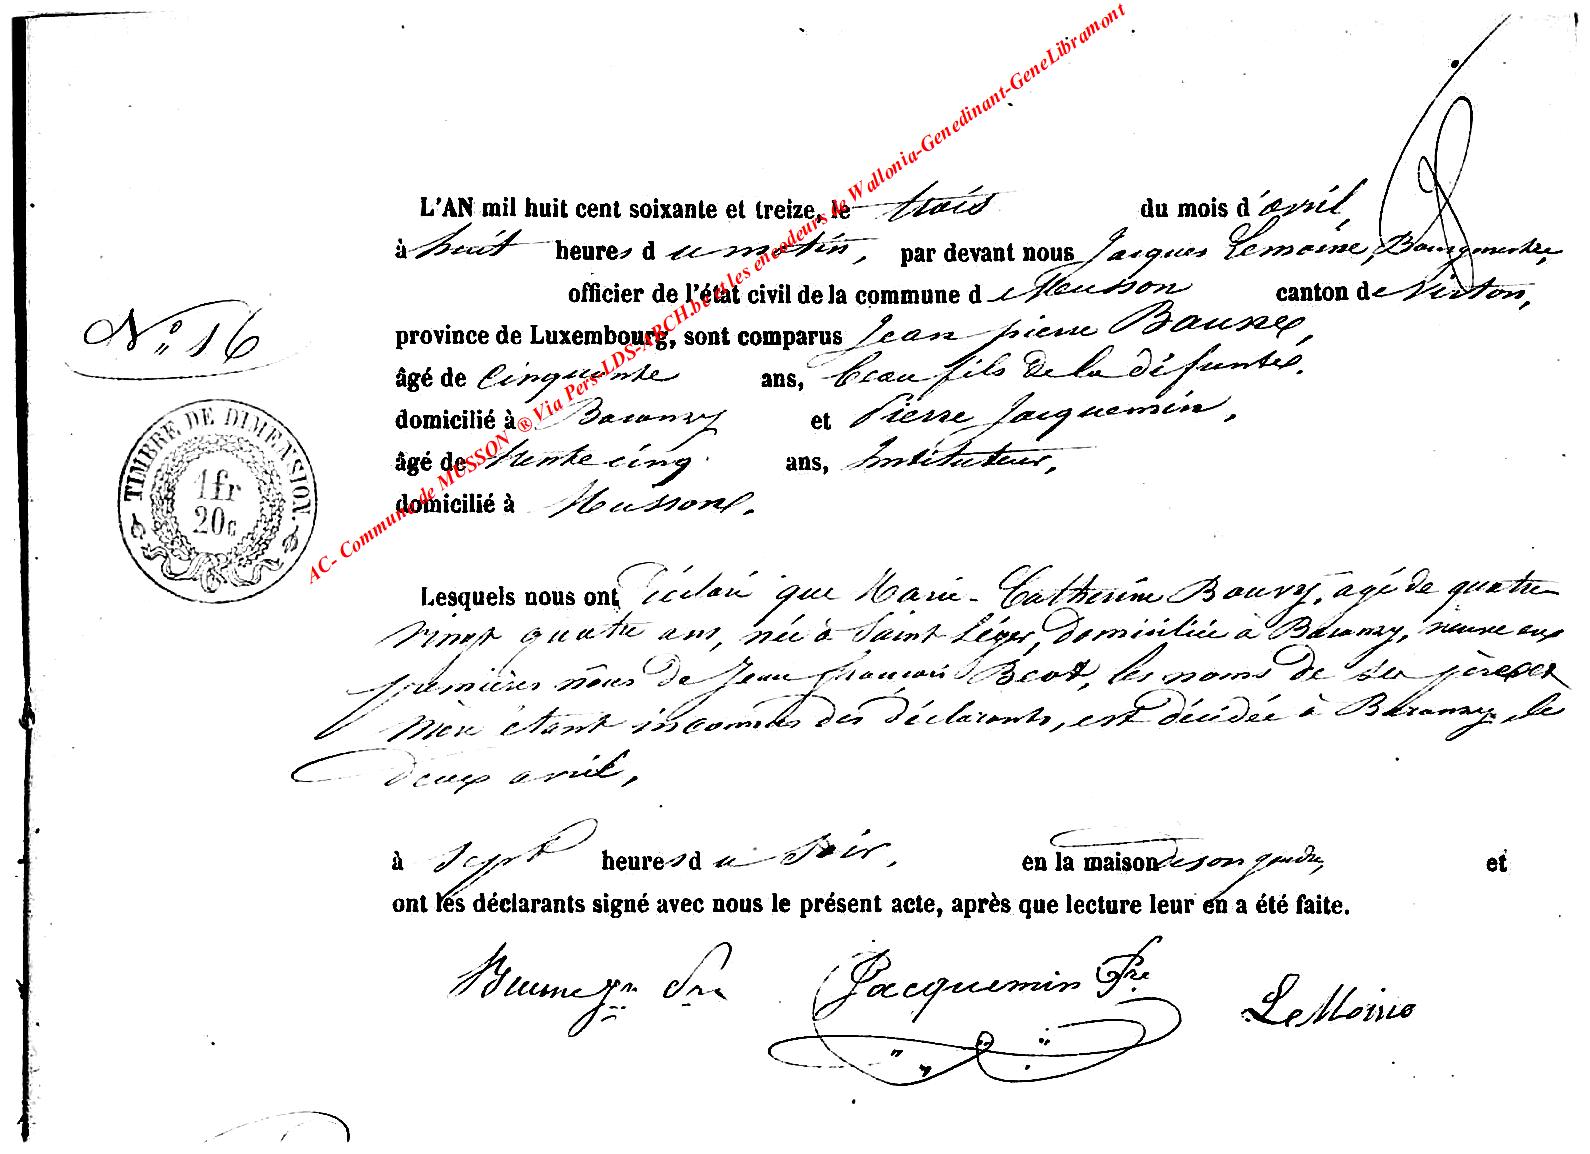 L'AN mil huit cent soixante et treize, le trois du mois d'avril,
à huit heures du matin, par devant nous Jacques Lemoine, Bourgmestre,
officier de l'état civil de la commune de Musson canton de Virton,
province de Luxembourg, sont comparus Jean pierre
âgé de cinquante ans, beau fils de la défunte.
domicilié à Baranzy et Pierre Jacquemin,
âgé de trente cinq ans, Instituteur,
domicilié à Musson.
N° 16
TIMBRE DE DIMENSION.
1 fr
20 c
Lesquels nous ont déclaré que Marie-Catherine Bouvy, agé de quatre
vingt quatre ans, née à Saint Léger, domiciliée à Baranzy, veuve aux
premières nôces de Jean françois les noms de ses père et
mère étant inconnus des déclarants, est décédée à Baranzy, le
deux avril,
à sept heures du soir, en la maison de son gendre, et
ont les déclarants signé avec nous le présent acte, après que lecture leur en a été faite.
Jacquemin Pre
LeMoine
AC- Commune de MUSSON ® Via Pers-LDS-ARCH.be et les encodeurs de Wallonia-Genedinant-GeneLibramont